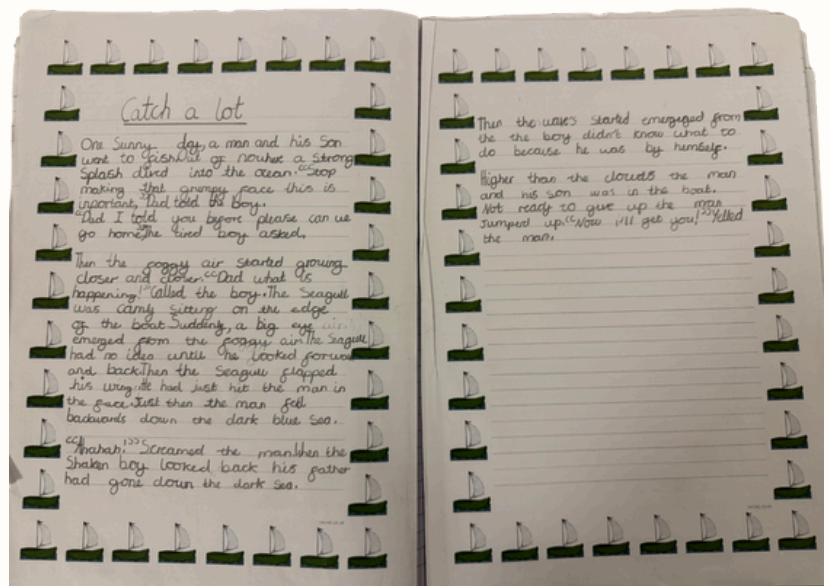 Catch a lot
One Sunny day, a man and his Son
went to fish.Out of nowhere a strong
Splash dived into the ocean. "Stop
making that grumpy face this is
inportant," Dad told the boy.
"Dad I told you before please can we
go home" The tired boy asked.
Then the foggy air started growing
closer and closer. "Dad what is
happening!" Called the boy. The Seagull
was camly sitting on the edge
of the boat. Suddenly, a big eye
emerged from the foggy air. The Seagull
had no idea until he looked forward
and back. Then the Seagull flapped
his wing. He had just hit the man in
the face. Just then the man fell
backwards down the dark blue Sea.
"Ahahah!" Screamed the man. When the
Shaken boy looked back his father
had gone down the dark Sea.
Then the waves started emergeged from
the the boy didn't know what to
do because he was by himself.
Higher than the clouds the man
and his son was in the boat.
Not ready to give up the man
Jumped up. "Now i'll get you!" Yelled
the man.